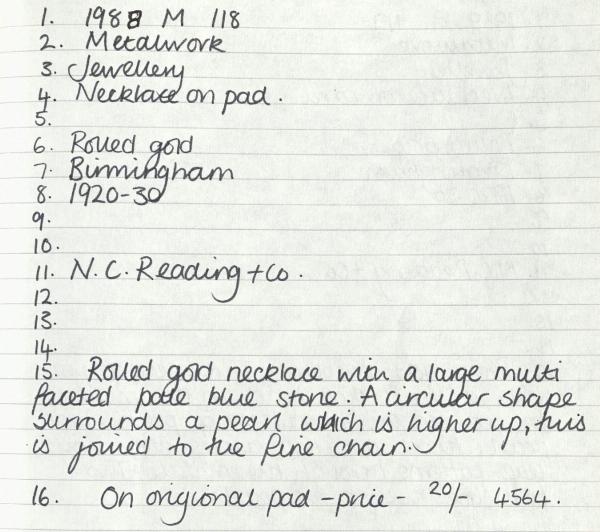 1. 1988 M 118
2. Metalwork
3. Jewellery
4. Necklace on pad.
5.
6. Rolled gold
7. Birmingham
8. 1920-30
9.
10.
11. N.C. Reading + Co.
12.
13.
14.
15. Rolled gold necklace with a large multi
faceted pale blue stone. A circular shape
surrounds a pearl which is higher up, this
is joined to the fine chain.
16. On origional pad - price - 20/- 4564.